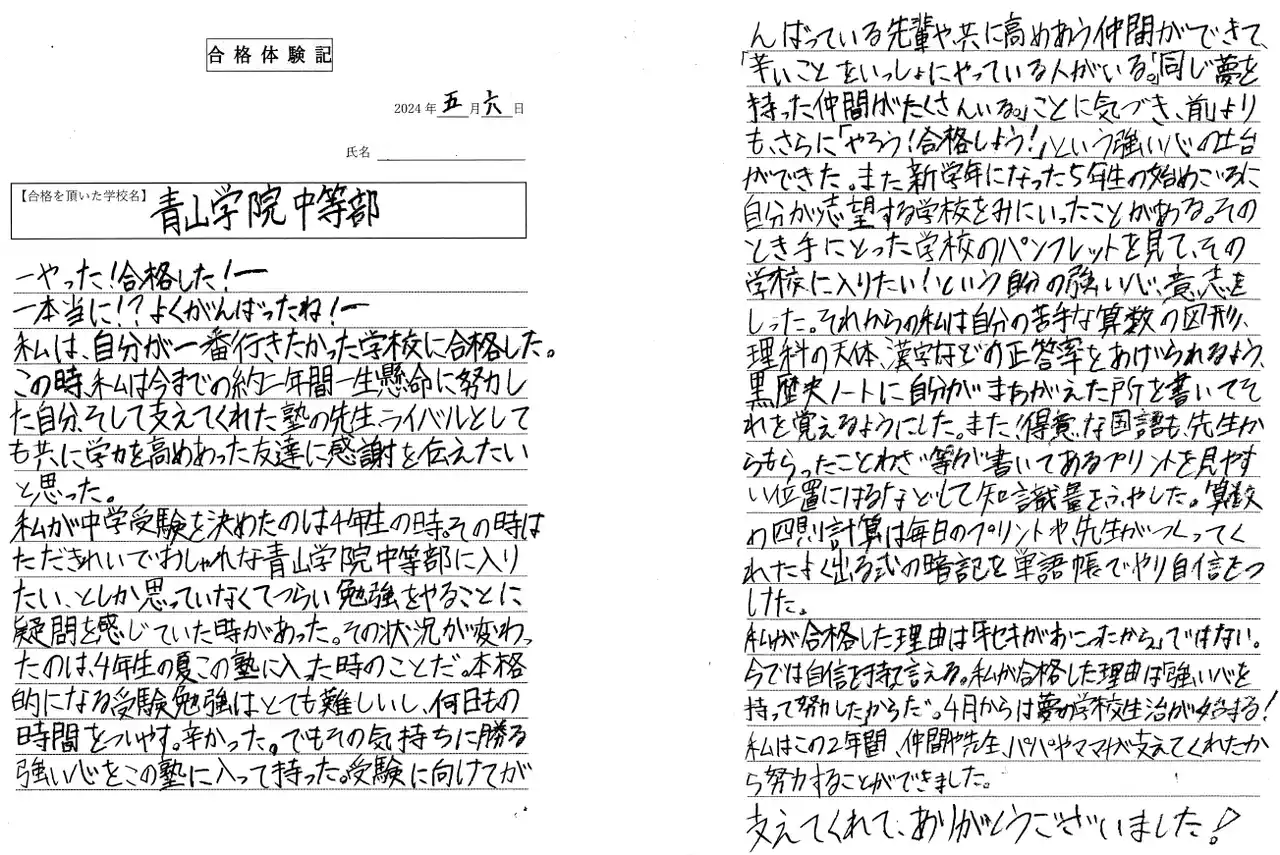 合格体験記
2024年五月六日
氏名
【合格を頂いた学校名】青山学院中等部
ーやった!合格した!ー
ー本当に!?よくがんばったね!ー
私は、自分が一番行きたかった学校に合格した。
この時、私は今までの約二年間一生懸命に努力し
た自分、そして支えてくれた塾の先生、ライバルとして
も共に学力を高めあった友達に感謝を伝えたい
と思った。
私が中学受験を決めたのは4年生の時。その時は
ただきれいでおしゃれな青山学院中等部に入り
たい、としか思っていなくてつらい勉強をやることに
疑問を感じていた時があった。その状況が変わっ
たのは、4年生の夏この塾に入った時のことだ。本格
的になる受験勉強はとても難しいし、何日もの
時間をついやす。辛かった。でもその気持ちに勝る
強い心をこの塾に入って持った。受験に向けてが
んばっている先輩や、共に高めあう仲間ができて、
「辛いことをいっしょにやっている人がいる。」「同じ夢を
持った仲間がたくさんいる。」ことに気づき、前より
も、さらに「やろう!合格しよう!」という強い心の土台
ができた。また新学年になった5年生の始めごろに
自分が志望する学校をみにいったことがある。その
とき手にとった学校のパンフレットを見て、その
学校に入りたい!という自分の強い心、意志を
しった。それからの私は自分の苦手な算数の図形、
理科の天体、漢字などの正答率をあげられるよう、
黒歴史ノートに自分がまちがえた所を書いてそ
れを覚えるようにした。また、得意な国語も、先生か
らもらったことわざ等が書いてあるプリントを見やす
い位置にはるなどして知識量をふやした。算数
の四則計算は毎日のプリントや、先生がつくってく
れたよく出る式の暗記を単語帳でやり自信をつ
けた。
私が合格した理由は「キセキがおこったから」ではない。
今では自信を持って言える。私が合格した理由は「強い心を
持って努力した」からだ。4月からは夢の学校生活が始まる!
私はこの2年間、仲間や先生、パパやママが支えてくれたか
ら努力することができました。
支えてくれて、ありがとうございました!